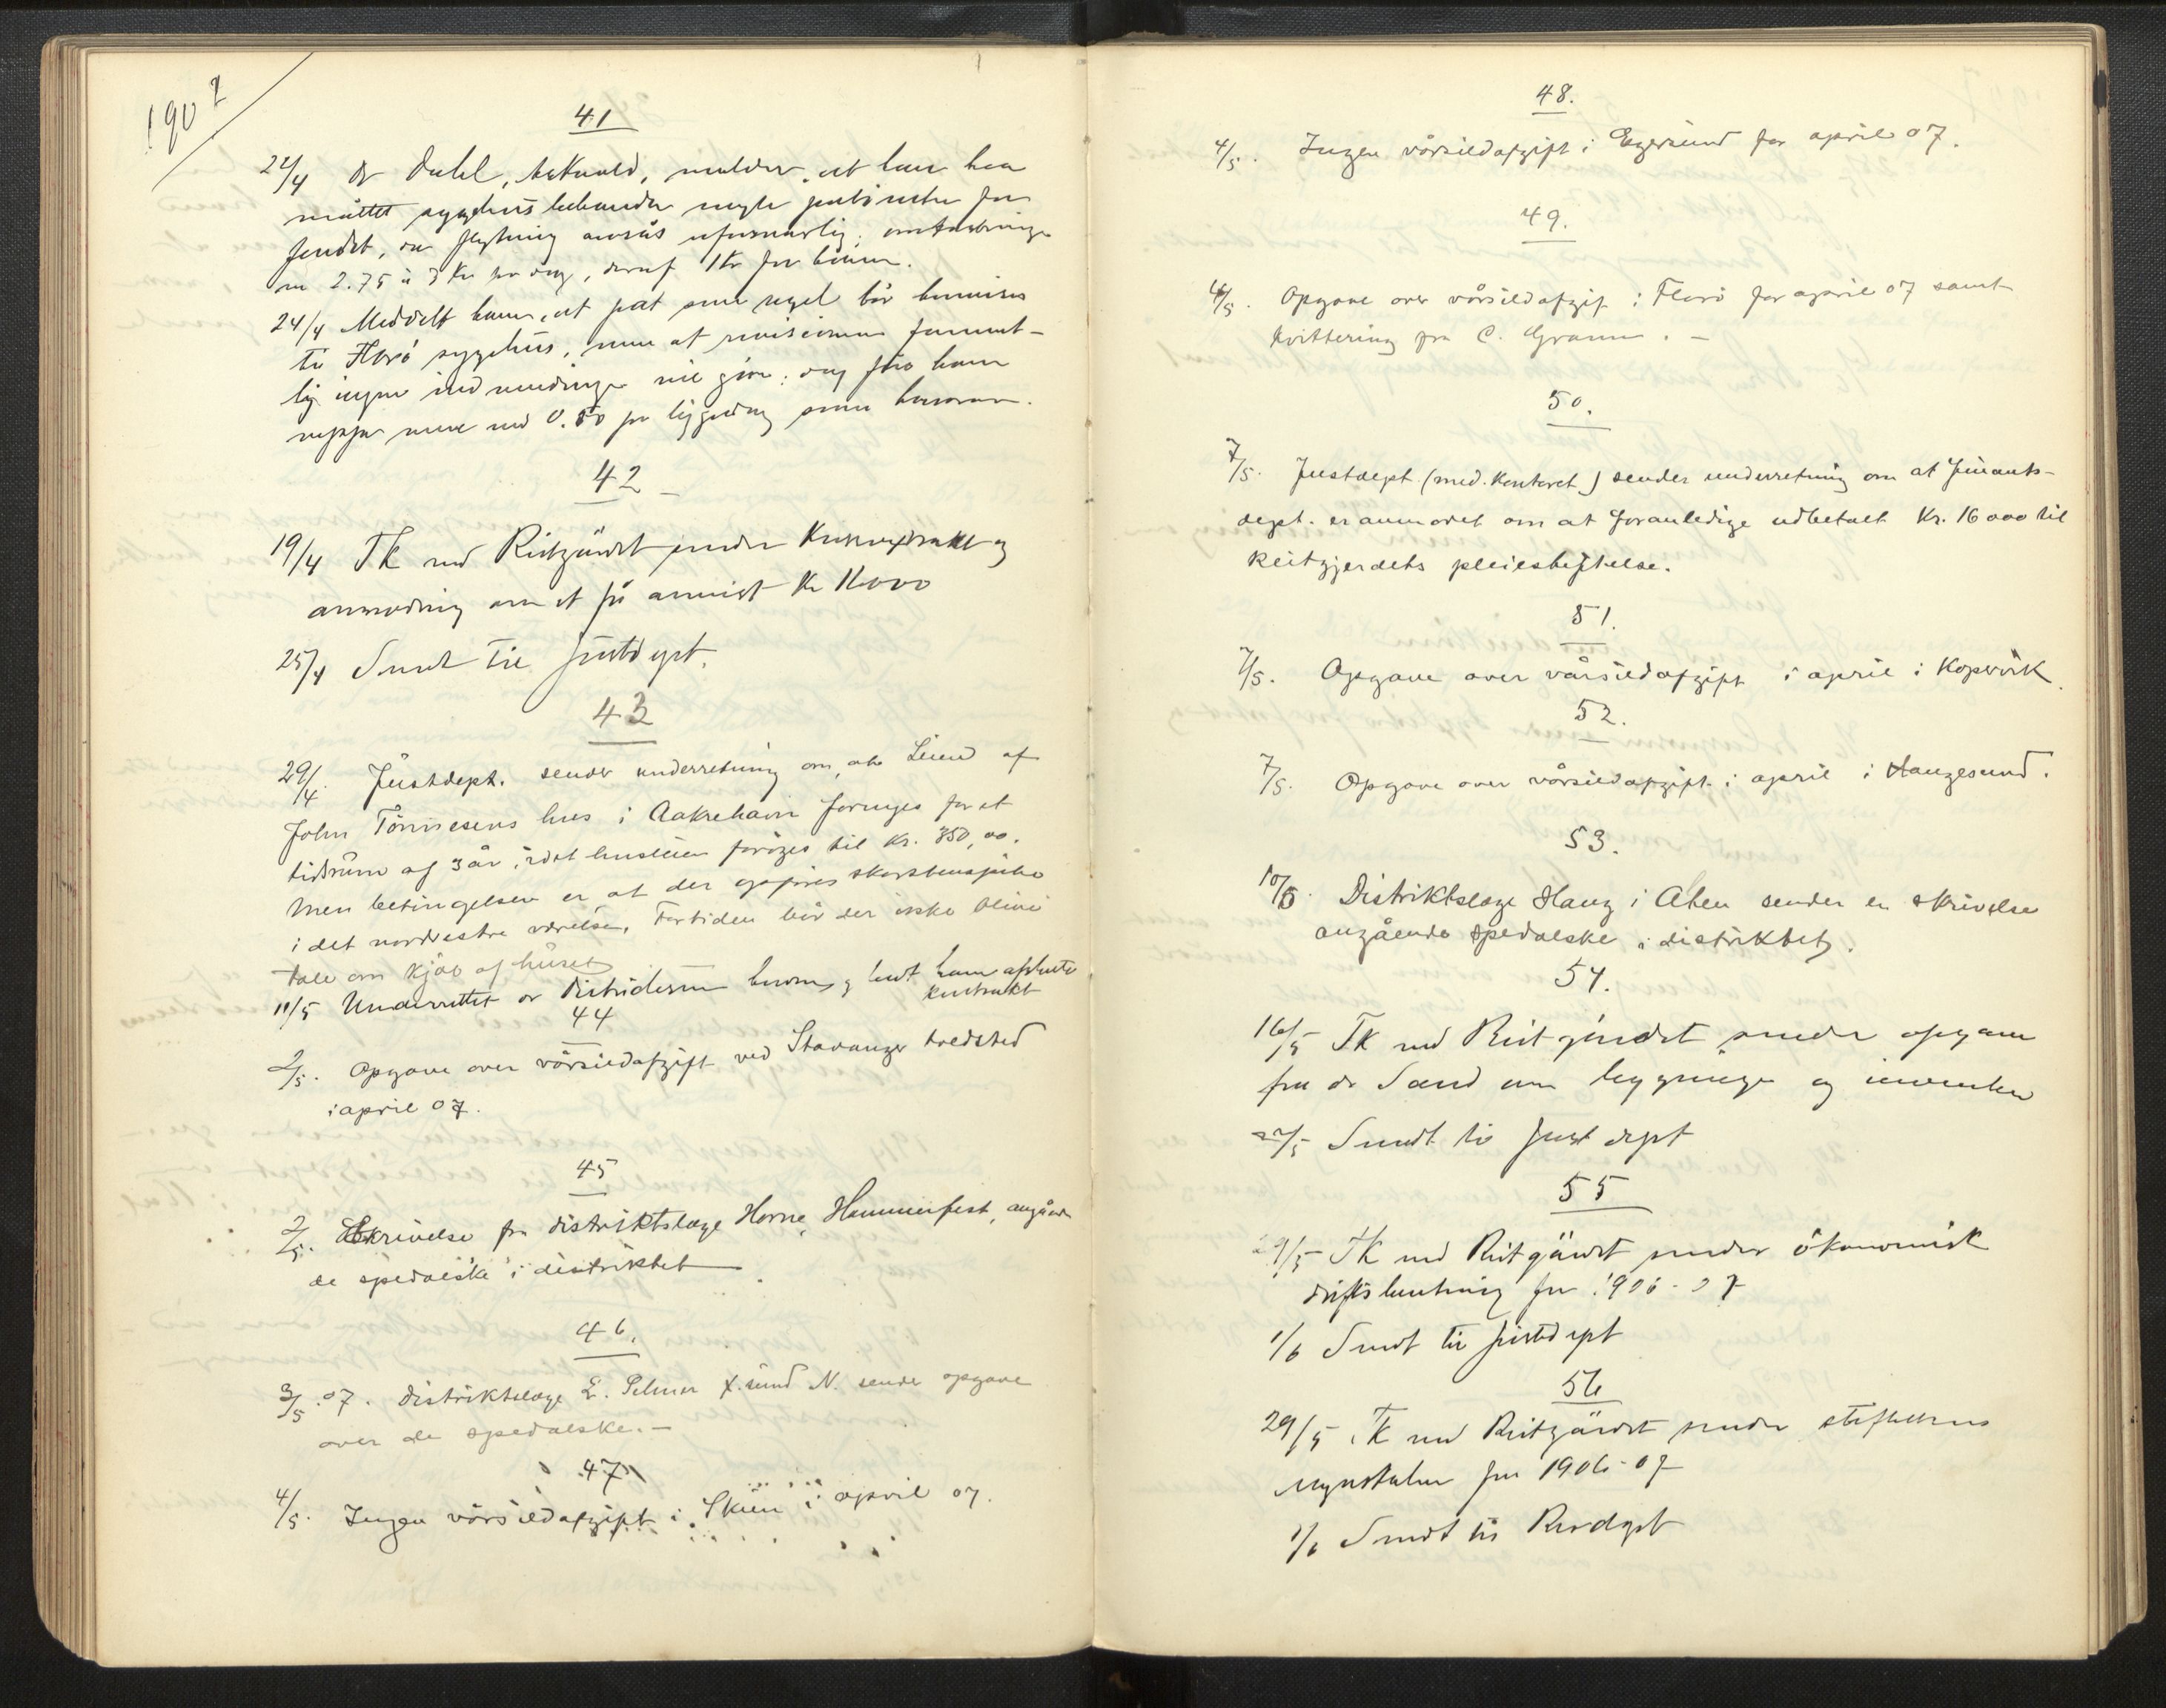 1907
41
22/4 Dr Dahl, Askvold, melder, at han har
måttet sygehusbehandle nogle patienter for
fundet, da flytning ansås uforsvarlig; omkostninger
om 2.75 à 3 Kr pr dag, deraf 1 Kr for
24/4 Meddelt ham, at pat som regel bør henvises
til Florö sygehus, men at revisionen formentlig
ingen indvendinger vil gjøre;
mere end 0.50 pr liggedag som honorar.
42
19/4 TK ved Reitgjærdet sender Kasseextrakt og
anmodning om at få anvist Kr 16000
25/4 Sendt til Justdept.
43
29/4. Justdept. sender underretning om, at Leien af
John Tönnesens hus i Aakrehavn fornyes for et
tidsrum af 3 år, idet husleien forøges til Kr. 350,00.
Men betingelsen er, at der opføres skorstenspibe
i det nordvestre værelse. Fortiden bör der ikke blive
tale om kjöb af huset
11/5 Underrettet or herom, og bedt ham afslutte
kontrakt
44
2/5. Opgave over vårsildafgift ved Stavanger toldsted
i april 07.
45
2/5. Skrivelse fra distriktslæge Horne, Hammerfest, angåen
de spedalske i distriktet
46.
3/5. 07. Distriktslæge E. X.sund N. sender opgave
over de spedalske. –
47
4/5. Ingen vårsildafgift i Skien i april 07.
48.
4/5. Ingen vårsildafgift i Egersund for april 07.
49.
6/5. Opgave over vårsildafgift i Florö for april 07 samt
kvittering fra C. Gramm. –
50.
7/5. Justdept (med. Kontoret) sender underretning om at Finants-
dept. er anmodet om at foranledige udbetalt Kr. 16000 til
Reitgjerdets pleiestiftelse.
51.
7/5. Opgave over vårsildafgift i april i Kopervik.
52.
7/5. Opgave over vårsildafgift i april i Haugesund.
53.
10/5. Distriktslæge Haug i Aalen sender en skrivelse
angående spedalske i distriktet.
54.
16/5 TK ved Reitgjerdet sender opgave
fra dr Sand om bygninger og inventar
27/5 Sendt til Justdept
55
29/5 TK ved Reitgjärdet sender økonomisk
driftsberetning for 1906-07
1/6 Sendt til Justdept
56
29/5 TK ved Reitgjärdet sender stiftelsens
regnskaber for 1906-07
1/6 Sendt til Revdept